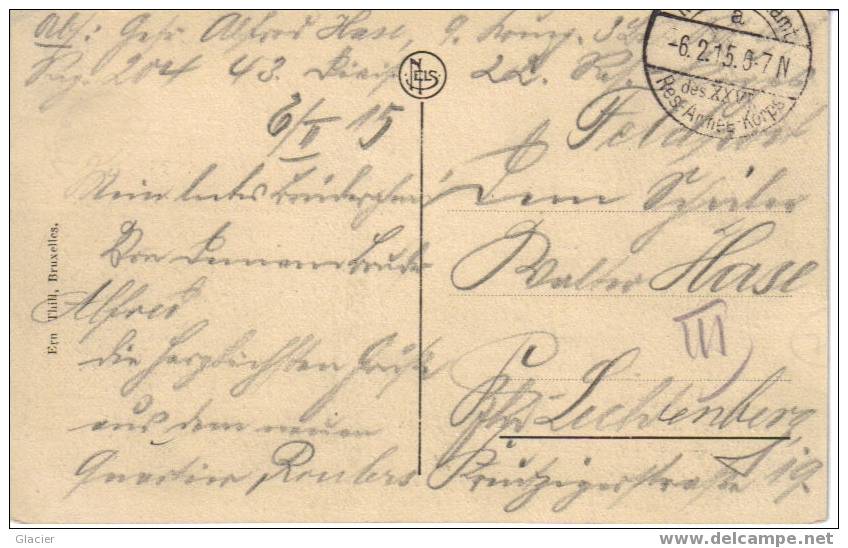 Abs: Gefr. Alfred Hase, 9. Komp.
Reg. 204 43. Divis. 22. Res.
6/II 15
Feldpost
Mein liebes Brüderchen!
Von Deinem Bruder
Alfred
die herzlichsten Grüße
aus dem neuen
Quartier Roulers
Dem Schüler
Walter Hase
III
Lichtenberg
19
NELS
Ern Thill, Bruxelles.
a
-6.2.15.6-7N
des XXVI
Res. Armee-Korps
Glacier
www.delcampe.net